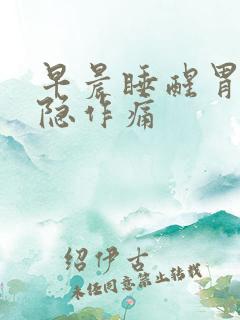 早晨睡醒胃
隐作痛
绍伊古
未经同意禁止转载